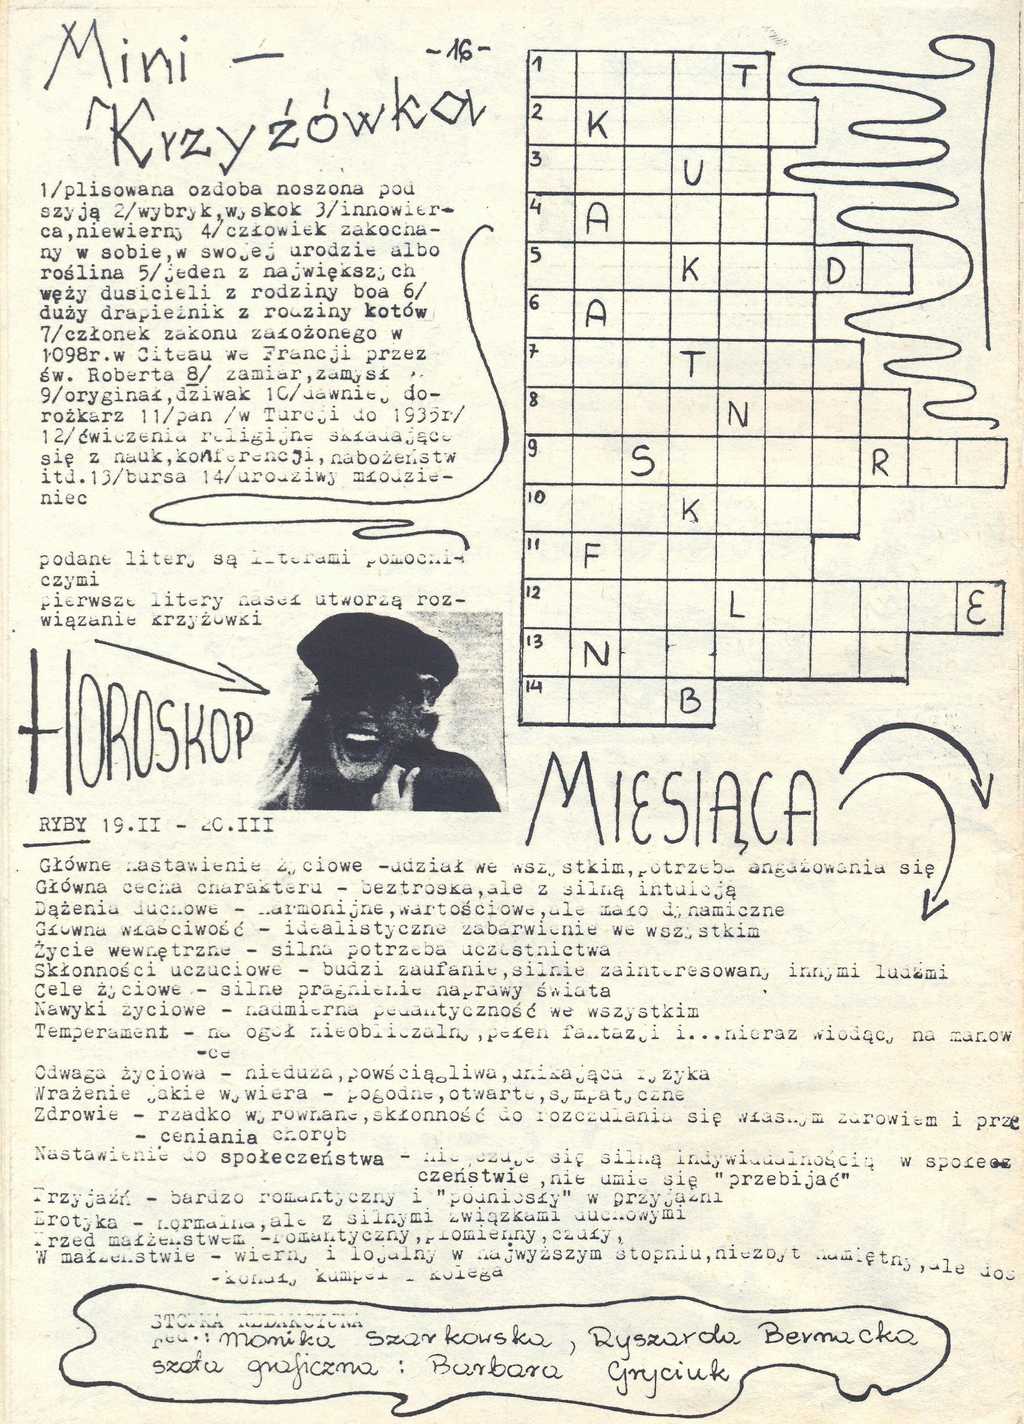 Mini -
-16-
Krzyżówka
1/plisowana ozdoba noszona pod
szyją 2/wybryk,wyskok 3/innowier-
ca,niewierny 4/człowiek zakocha-
ny w sobie,w swojej urodzie albo
roślina 5/jeden z największych
węży dusicieli z rodziny boa 6/
duży drapieżnik z rodziny kotów
7/członek zakonu założonego w
1098r.w Citeau we Francji przez
św. Roberta 8/ zamiar,zamysł
9/oryginał,dziwak 10/dawniej do-
rożkarz 11/pan /w Turcji do 1935r/
12/ćwiczenia religijne składające
się z nauk,konferencji,nabożeństw
itd.13/bursa 14/urodziwy młodzie-
niec
podane litery są literami pomocni-
czymi
pierwsze litery haseł utworzą roz-
wiązanie krzyżówki
1 T
2 K
3 U
4 A
5 K D
6 A
7 T
8 N
9 S R
10 K
11 F
12 L E
13 N
14 B
HOROSKOP
MIESIĄCA
RYBY 19.II - 20.III
Główne nastawienie życiowe -udział we wszystkim,potrzeba angażowania się
Główna cecha charakteru - beztroska,ale z silną intuicją
Dążenia duchowe - harmonijne,wartościowe,ale mało dynamiczne
Główna właściwość - idealistyczne zabarwienie we wszystkim
Życie wewnętrzne - silna potrzeba uczestnictwa
Skłonności uczuciowe - budzi zaufanie,silnie zainteresowany innymi ludźmi
Cele życiowe - silne pragnienie naprawy świata
Nawyki życiowe - nadmierna pedantyczność we wszystkim
Temperament - na ogół nieobliczalny,pełen fantazji i...nieraz wiodący na manow
-ce
Odwaga życiowa - nieduża,powściągliwa,unikająca ryzyka
Wrażenie jakie wywiera - pogodne,otwarte,sympatyczne
Zdrowie - rzadko wyrównane,skłonność do rozczulania się własnym zdrowiem i prze
- ceniania chorób
Nastawienie do społeczeństwa - nie czuje się silną indywidualnością w społecz
czeństwie,nie umie się "przebijać"
Przyjaźń - bardzo romantyczny i "podniosły" w przyjaźni
Erotyka - normalna,ale z silnymi związkami duchowymi
Przed małżeństwem -romantyczny,płomienny,czuły,
W małżeństwie - wierny i lojalny w najwyższym stopniu,niezbyt namiętny,ale dos
-konały kumpel i kolega
STOPKA REDAKCYJNA
red.: Monika Szarkowska, Ryszarda Bernacka
szata graficzna : Barbara Gryciuk